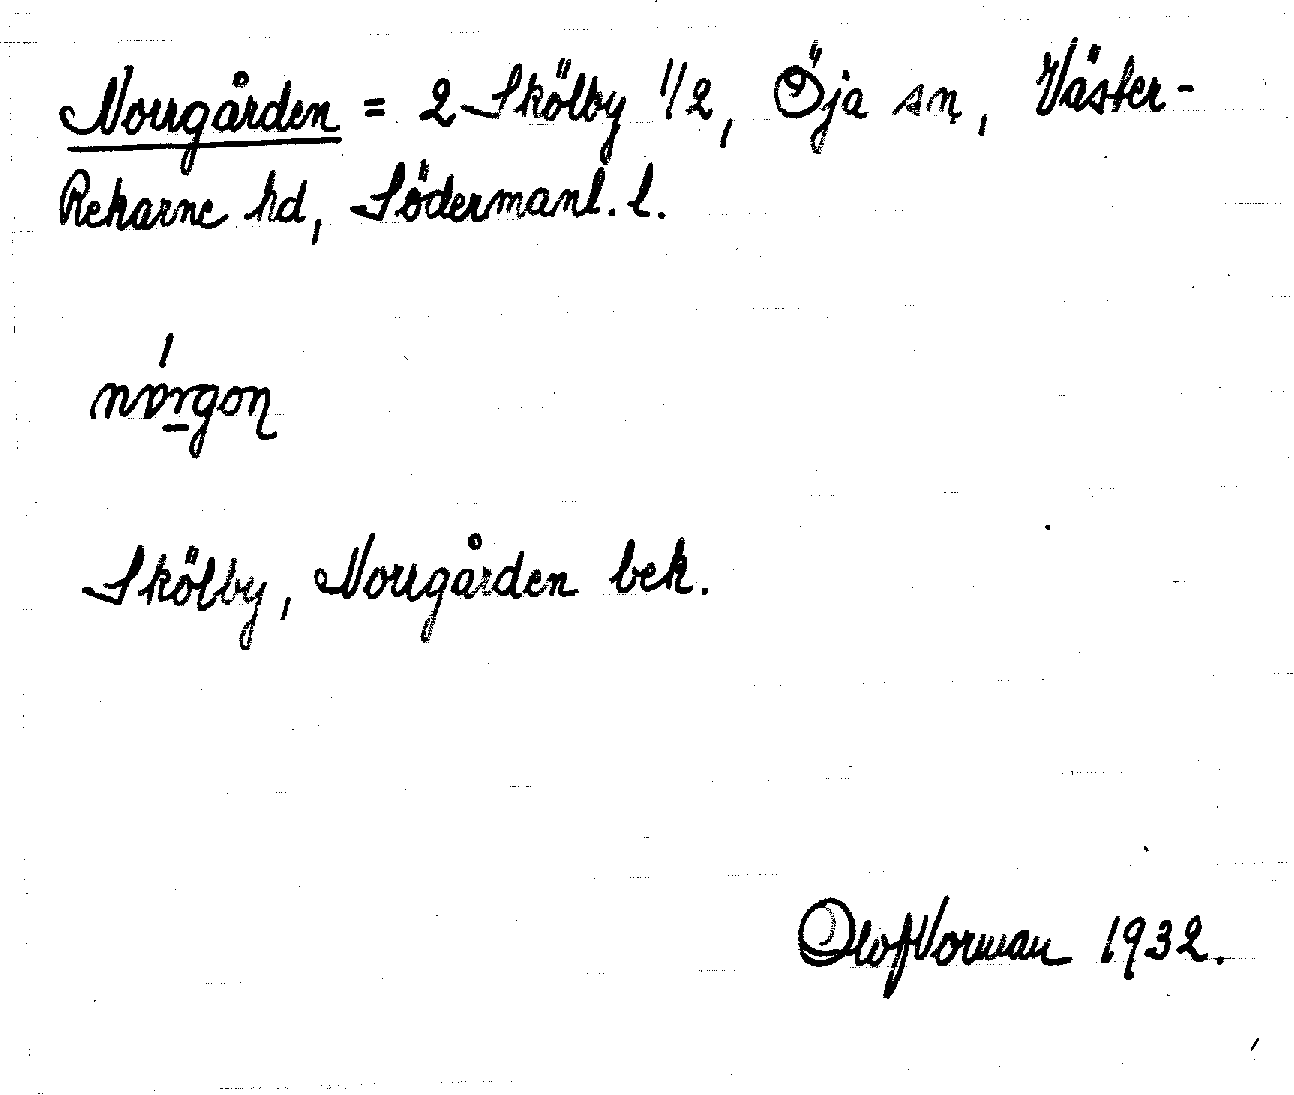 Norrgården = 2 Skölby 1/2, Öja sn, Väster-
Rekarne hd, Södermanl. l.
Skölby, Norrgården bek.
Olof Norman 1932.